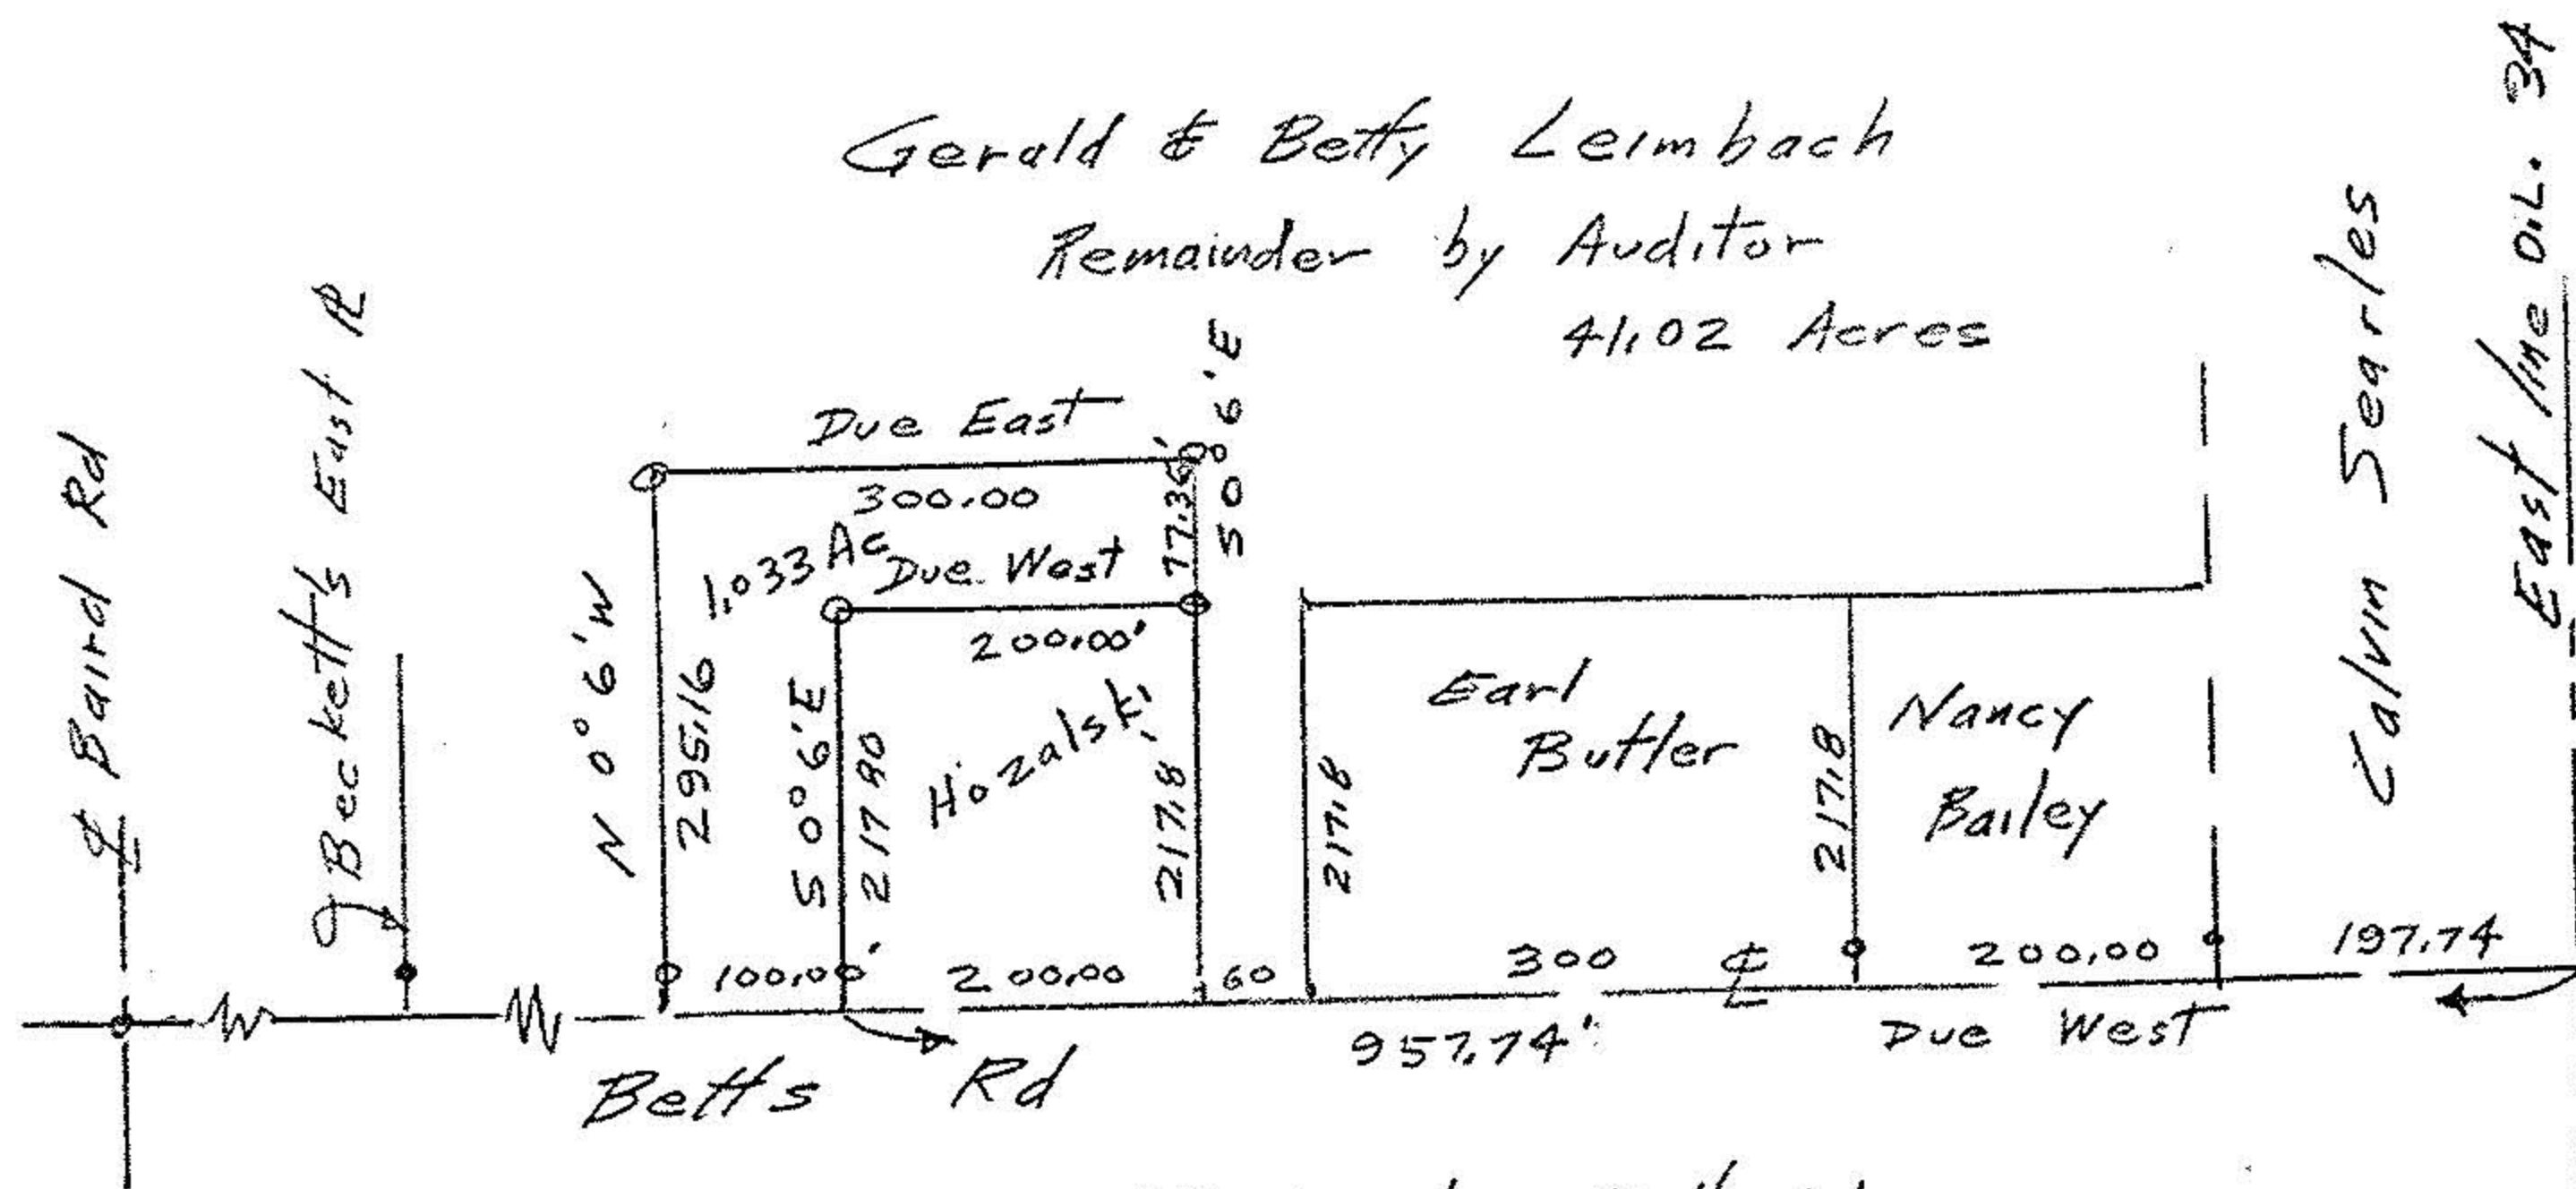 Gerald & Betty Leimbach
Remainder by Auditor
41.02 Acres
℄ Baird Rd
Becketts East ℞
N 0° 6' W
295.16
Due East
300.00
1.033 Ac
Due West
200.00'
77.36'
S 0° 6' E
S 0° 6' E
217.80
Hozalski
217.8'
217.8
Earl
Butler
217.8
Nancy
Bailey
Calvin Searles
East line O.L. 34
100.00'
200.00
60
300
℄
200.00
197.74
957.74'
Due West
Betts Rd